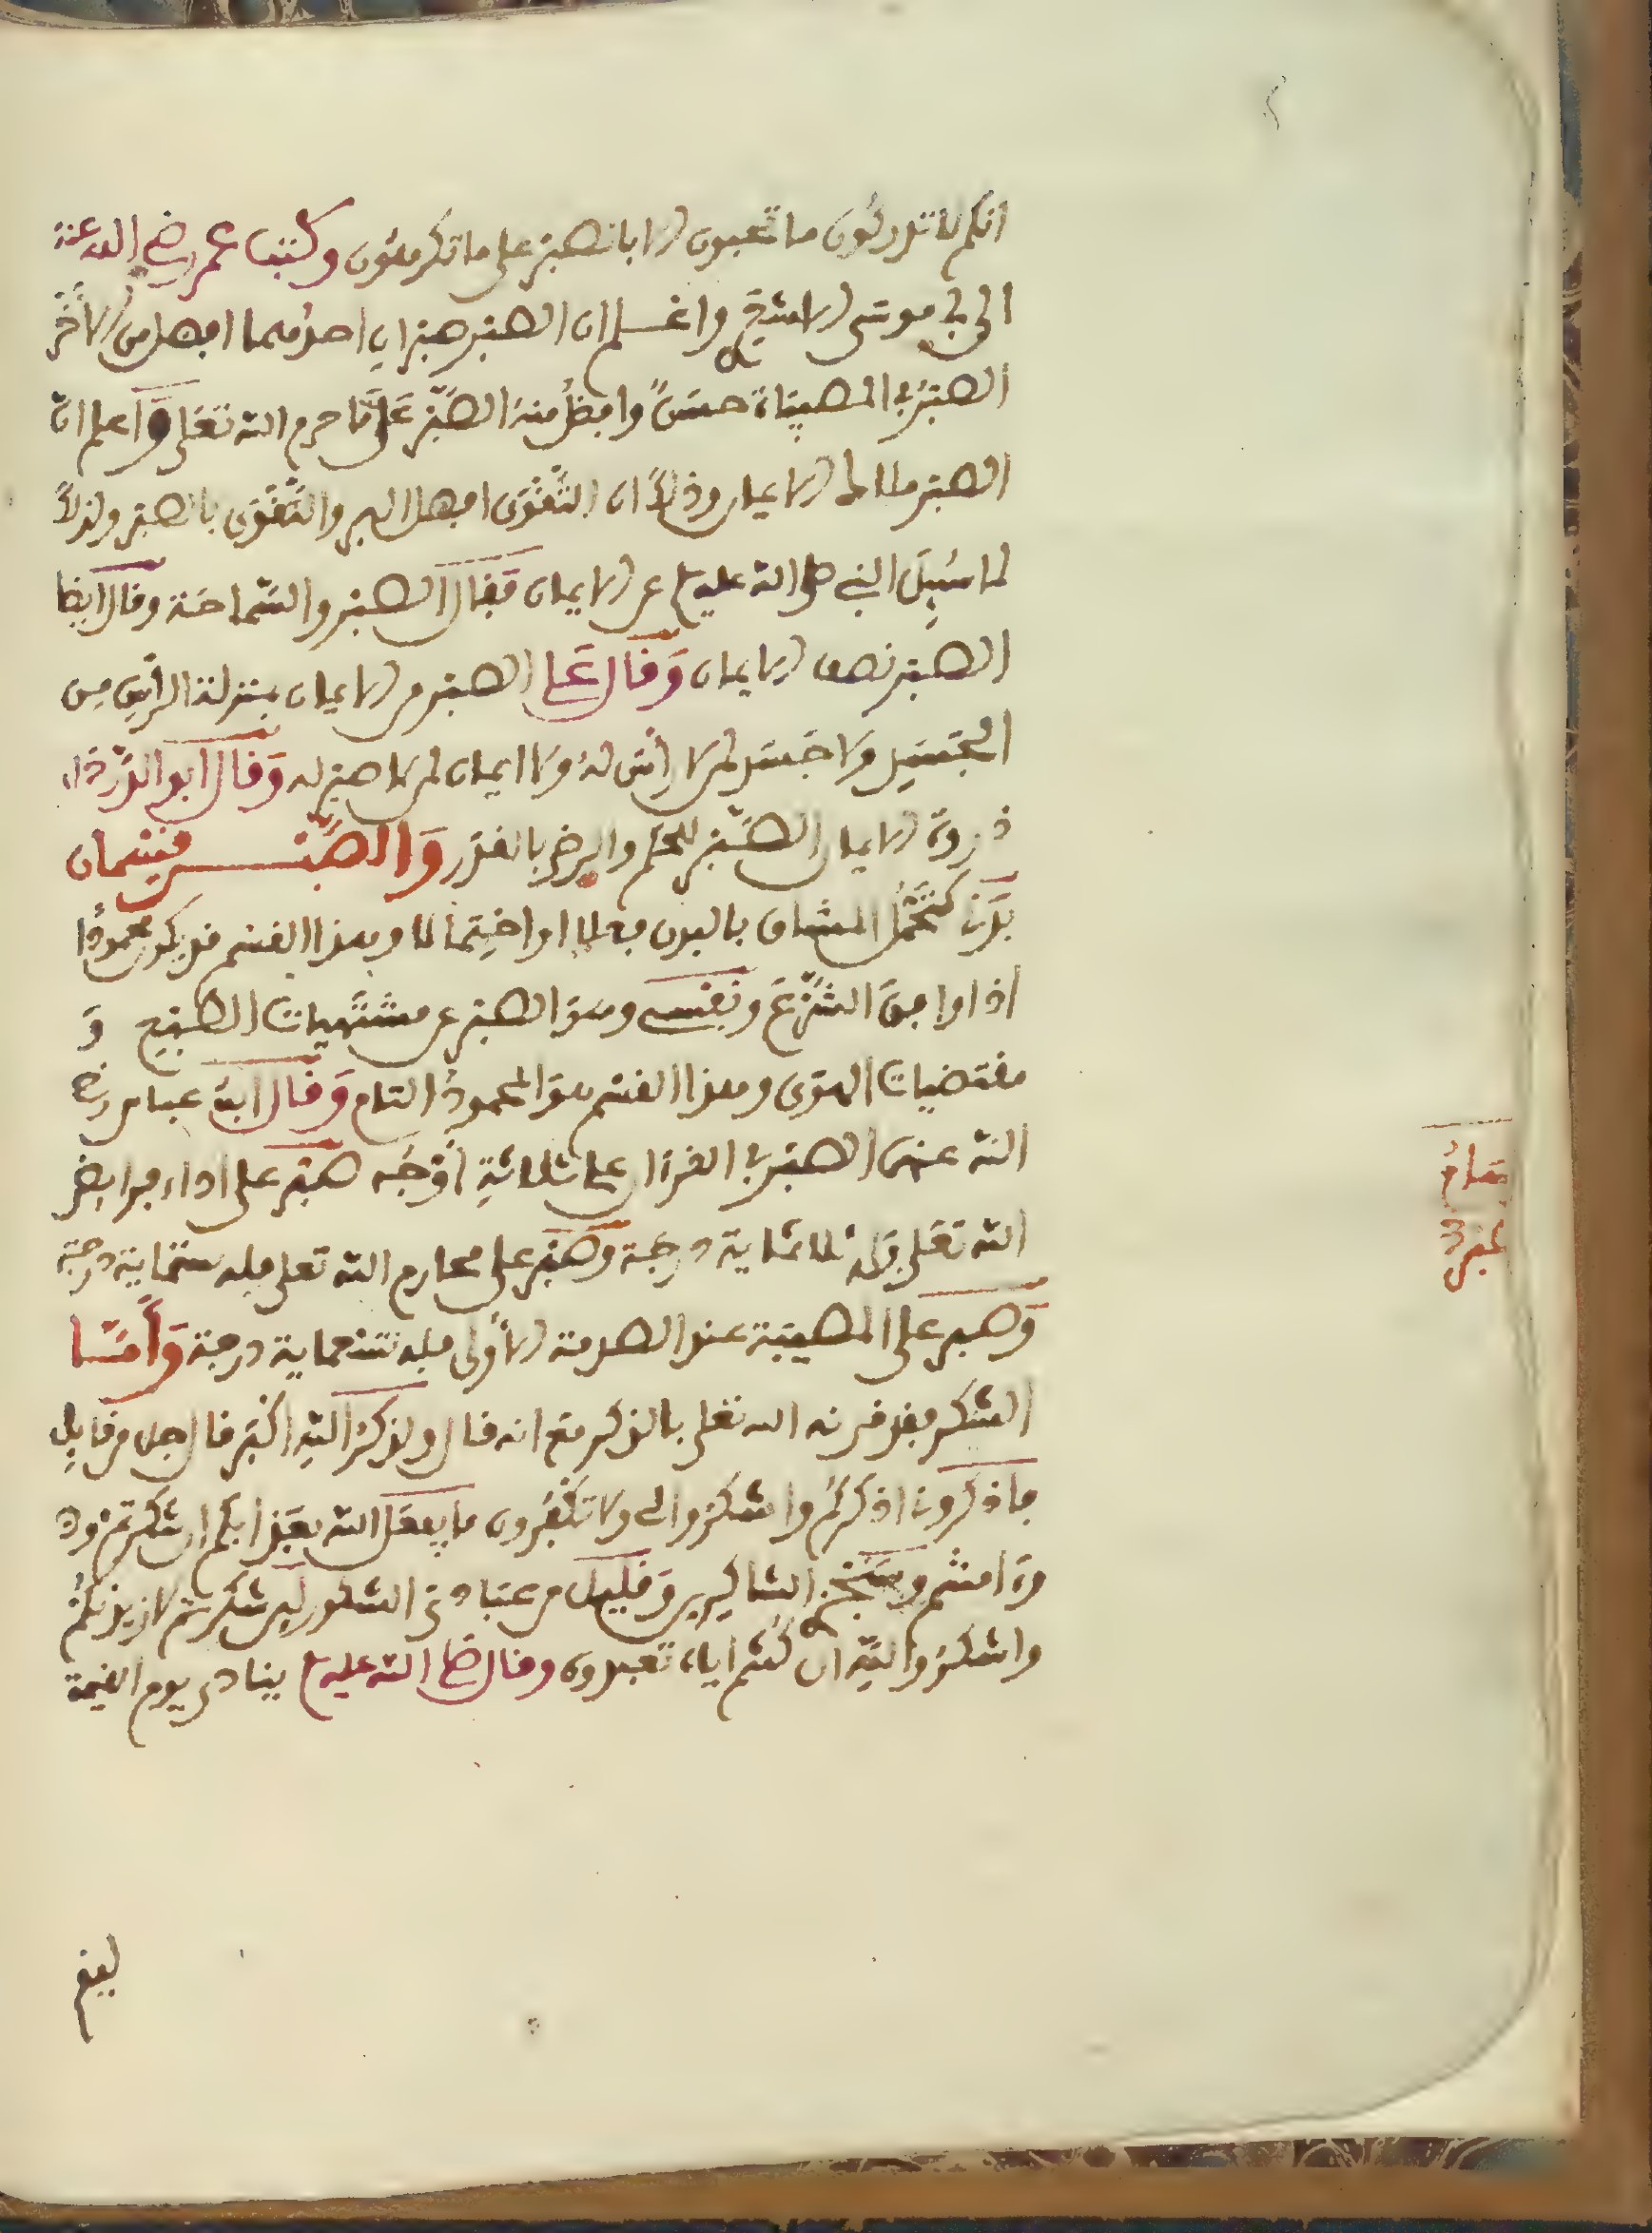 انكم لا تدركون ما تحبون الا بالصبر على ما تكرهون وكتب عمر رضي الله عنه
الى ابي موسى الاشعري واعلم ان الصبر صبران احدهما افضل من الاخر
الصبر في المصيبات حسن وافضل منه الصبر على ما حرم الله تعلى واعلم ان
الصبر ملاك الايمان وذلك ان التقوى افضل البر والتقوى بالصبر ولذلك
لما سيل النبي صلى الله عليه عن الايمان فقال الصبر والسماحة وقال ايضا
الصبر نصف الايمان وقال علي الصبر من الايمان بمنزلة الراس من
الجسد ولا جسد لمن لا راس له ولا ايمان لمن لا صبر له وقال ابو الدرداء
ذروة الايمان الصبر للحكم والرضى بالقدر والصبر قسمان
بدني كتحمل المشاق بالبدن فعلا او احتمالا وهذا القسم قد يكون محمودا
اذا وافق الشرع ونفسي وهو الصبر عن مشتهيات الطبع و
مقتضيات الهوى وهذا القسم هو المحمود التام وقال ابن عباس رضي
الله عنهما الصبر في القرءان على ثلاثة اوجه صبر على اداء فرايض
الله تعلى فله ثلاثماية درجة وصبر على محارم الله تعلى فله ستماية درجة
وصبر على المصيبة عند الصدمة الاولى فله تسعماية درجة واما
الشكر فقد قرنه الله تعلى بالذكر مع انه قال ولذكر الله اكبر فقال جل من قايل
فاذكروني اذكركم واشكروا لي ولا تكفرون ما يفعل الله بعذابكم ان شكرتم
وءامنتم وسنجزي الشاكرين وقليل من عبادي الشكور لين شكرتم لازيدنكم
واشكروا لله ان كنتم اياه تعبدون وقال صلى الله عليه ينادى يوم القيمة
ليقم